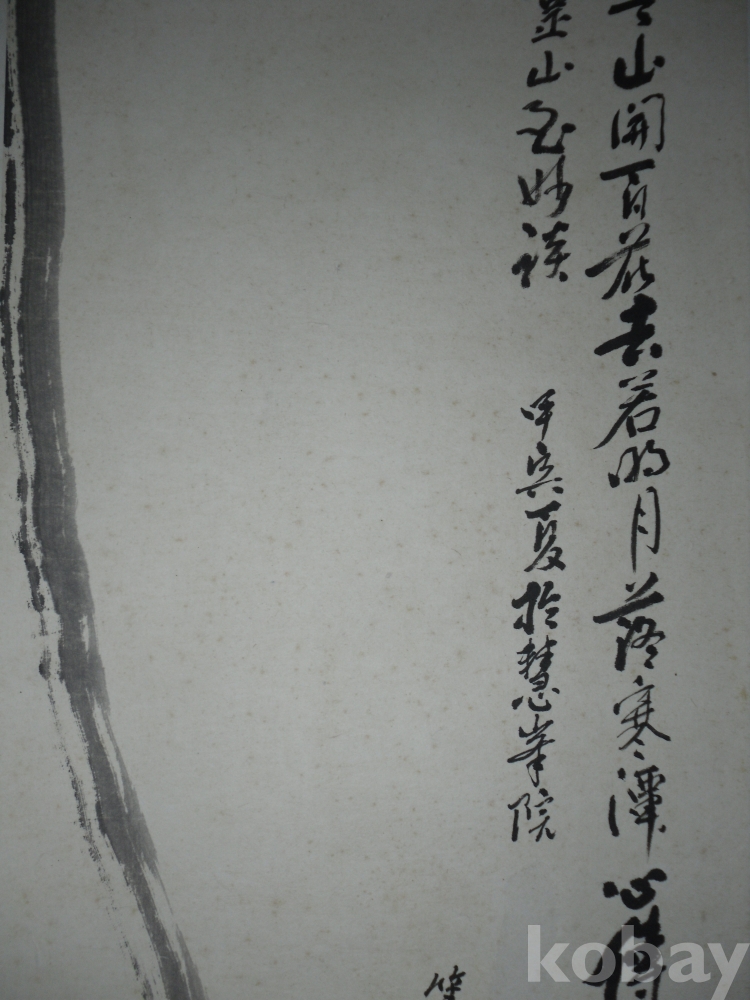 山開百花去若明月落寒潭心傳
靈山至妙談
甲寅夏於慧峯院
kobay